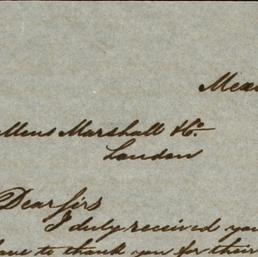 Mexi
Mens Marshall & Co.
London
Dear Sirs
I duly received you
have to thank you for their